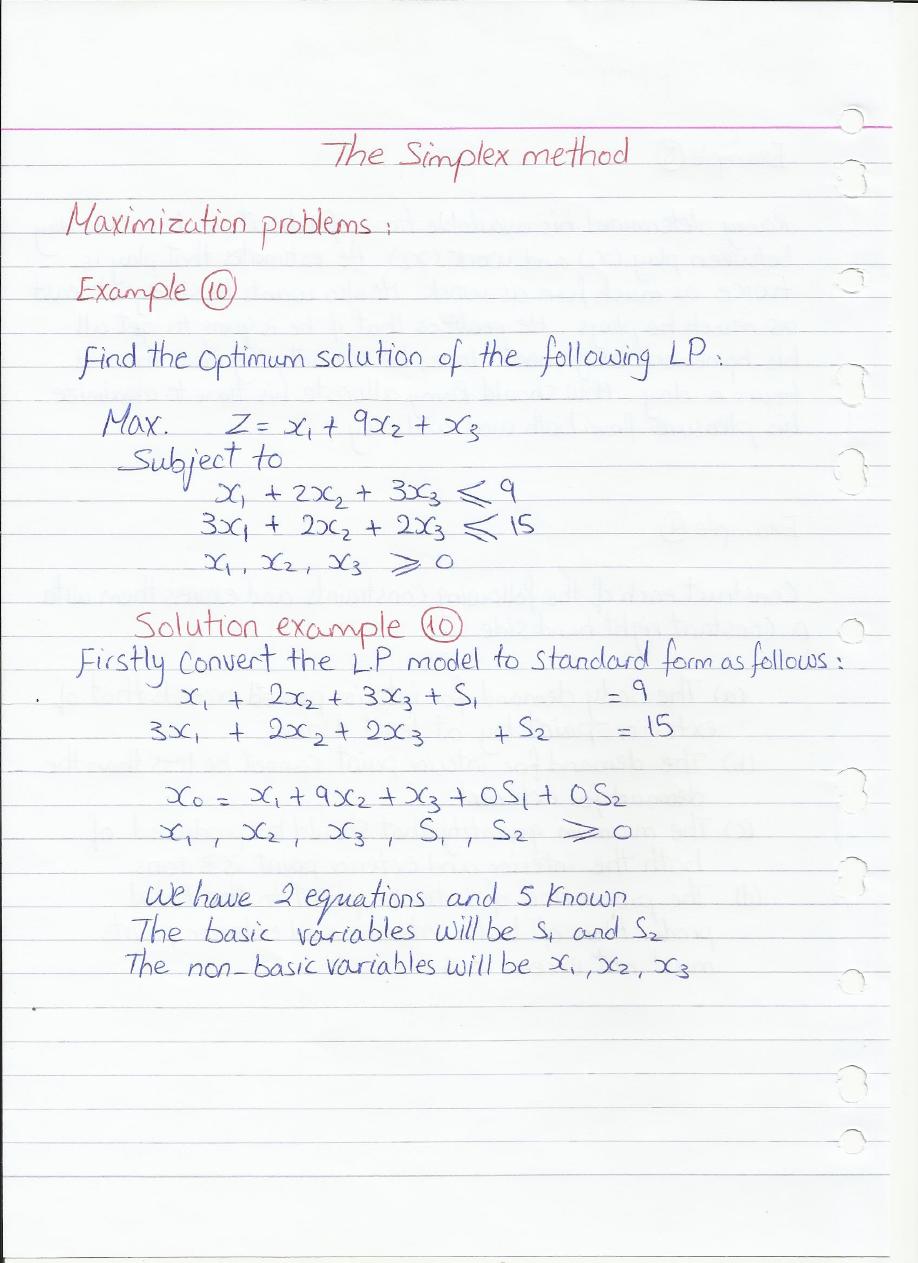 The Simplex method
Maximization problems:
Example ⑩
Find the optimum solution of the following LP:
Max. Z = x₁ + 9x₂ + x₃
Subject to
x₁ + 2x₂ + 3x₃ ⩽ 9
3x₁ + 2x₂ + 2x₃ ⩽ 15
x₁, x₂, x₃ ⩾ 0
Solution example ⑩
Firstly Convert the LP model to standard form as follows:
x₁ + 2x₂ + 3x₃ + S₁ = 9
3x₁ + 2x₂ + 2x₃ + S₂ = 15
x₀ = x₁ + 9x₂ + x₃ + 0S₁ + 0S₂
x₁, x₂, x₃, S₁, S₂ ⩾ 0
We have 2 equations and 5 Known
The basic variables will be S₁ and S₂
The non-basic variables will be x₁, x₂, x₃